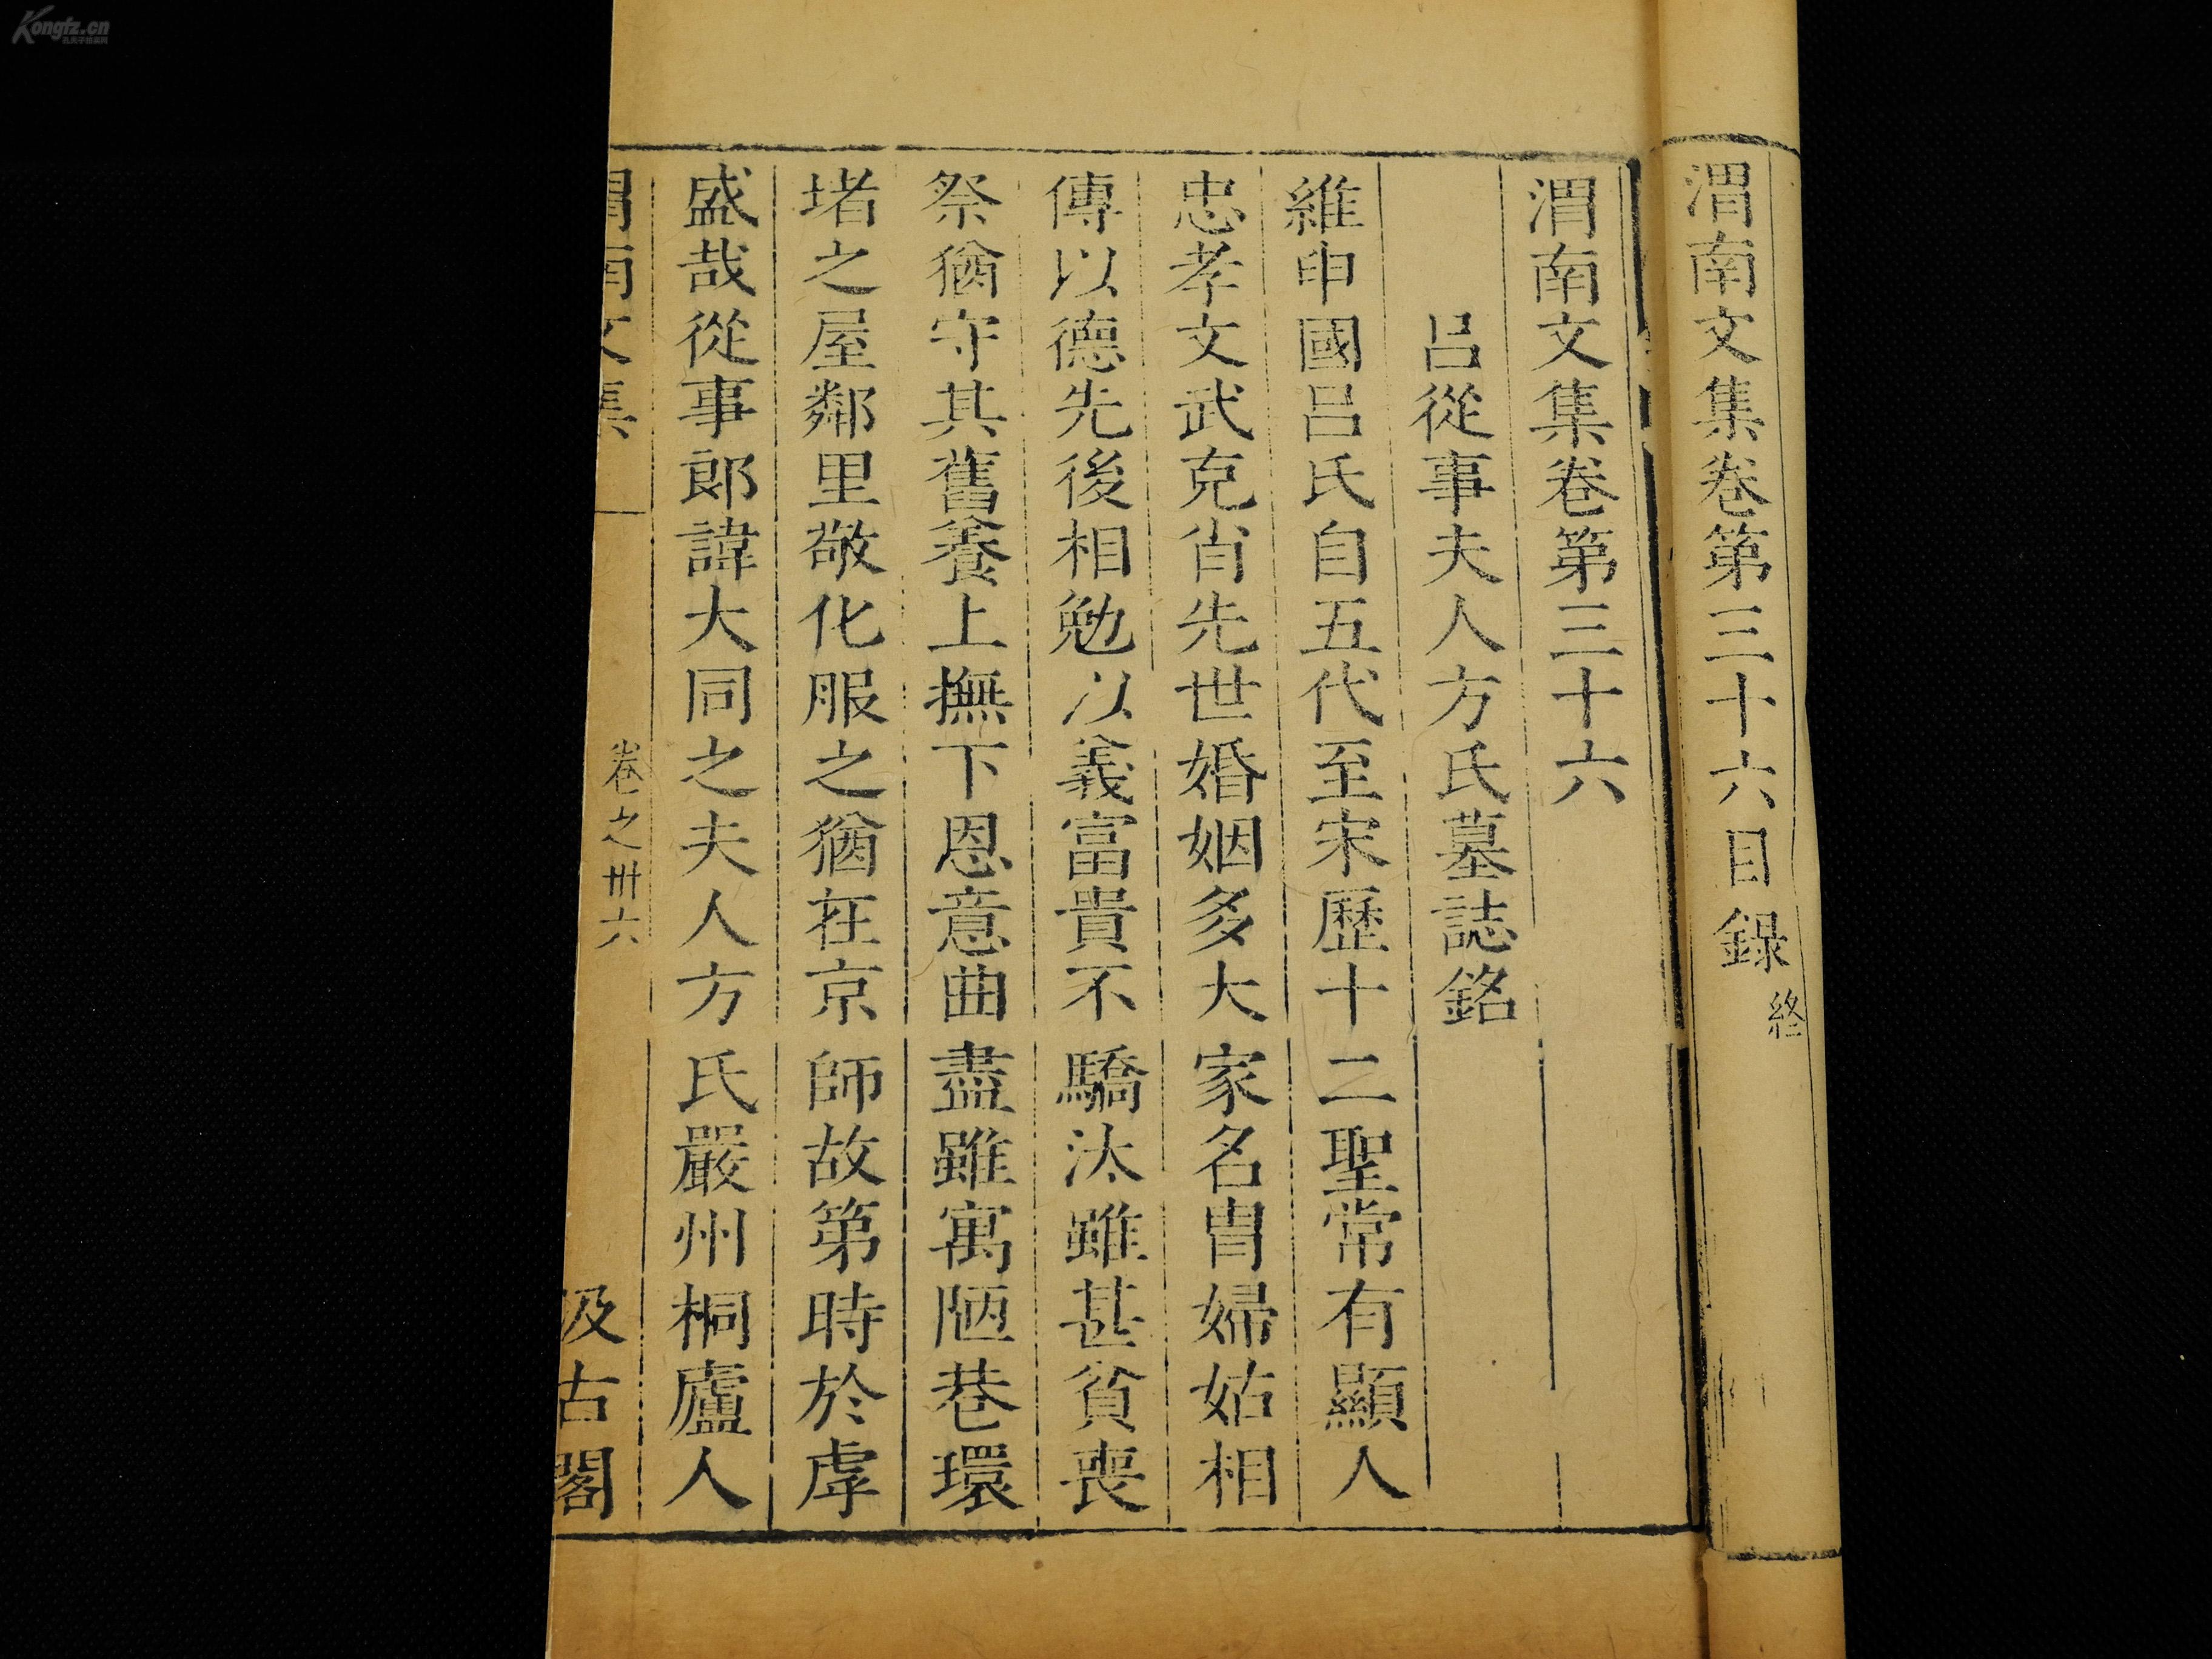 渭南文集卷第三十六目錄終
渭南文集卷第三十六
呂從事夫人方氏墓誌銘
維申國呂氏自五代至宋歷十二聖常有顯人
忠孝文武克肖先世婚姻多大家名胄婦姑相
傳以德先後相勉以義富貴不驕汰雖甚貧喪
祭猶守其舊養上撫下恩意曲盡雖寓陋巷環
堵之屋鄰里敬化服之猶在京師故第時於虖
盛哉從事郎諱大同之夫人方氏嚴州桐廬人
渭南文集
卷之卅六
汲古閣
Kongfz.cn